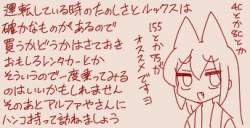 運転している時のたのしさとルックスは
確かなものがあるので
買うかどうかはさておき
おもしろレンタカーとか
そういうので一度乗ってみる
のはいいかもしれません
そのあとアルファやさんに
ハンコ持って訪ねましょう
4Cとか8Cとか
155とか75が
オススメですヨ